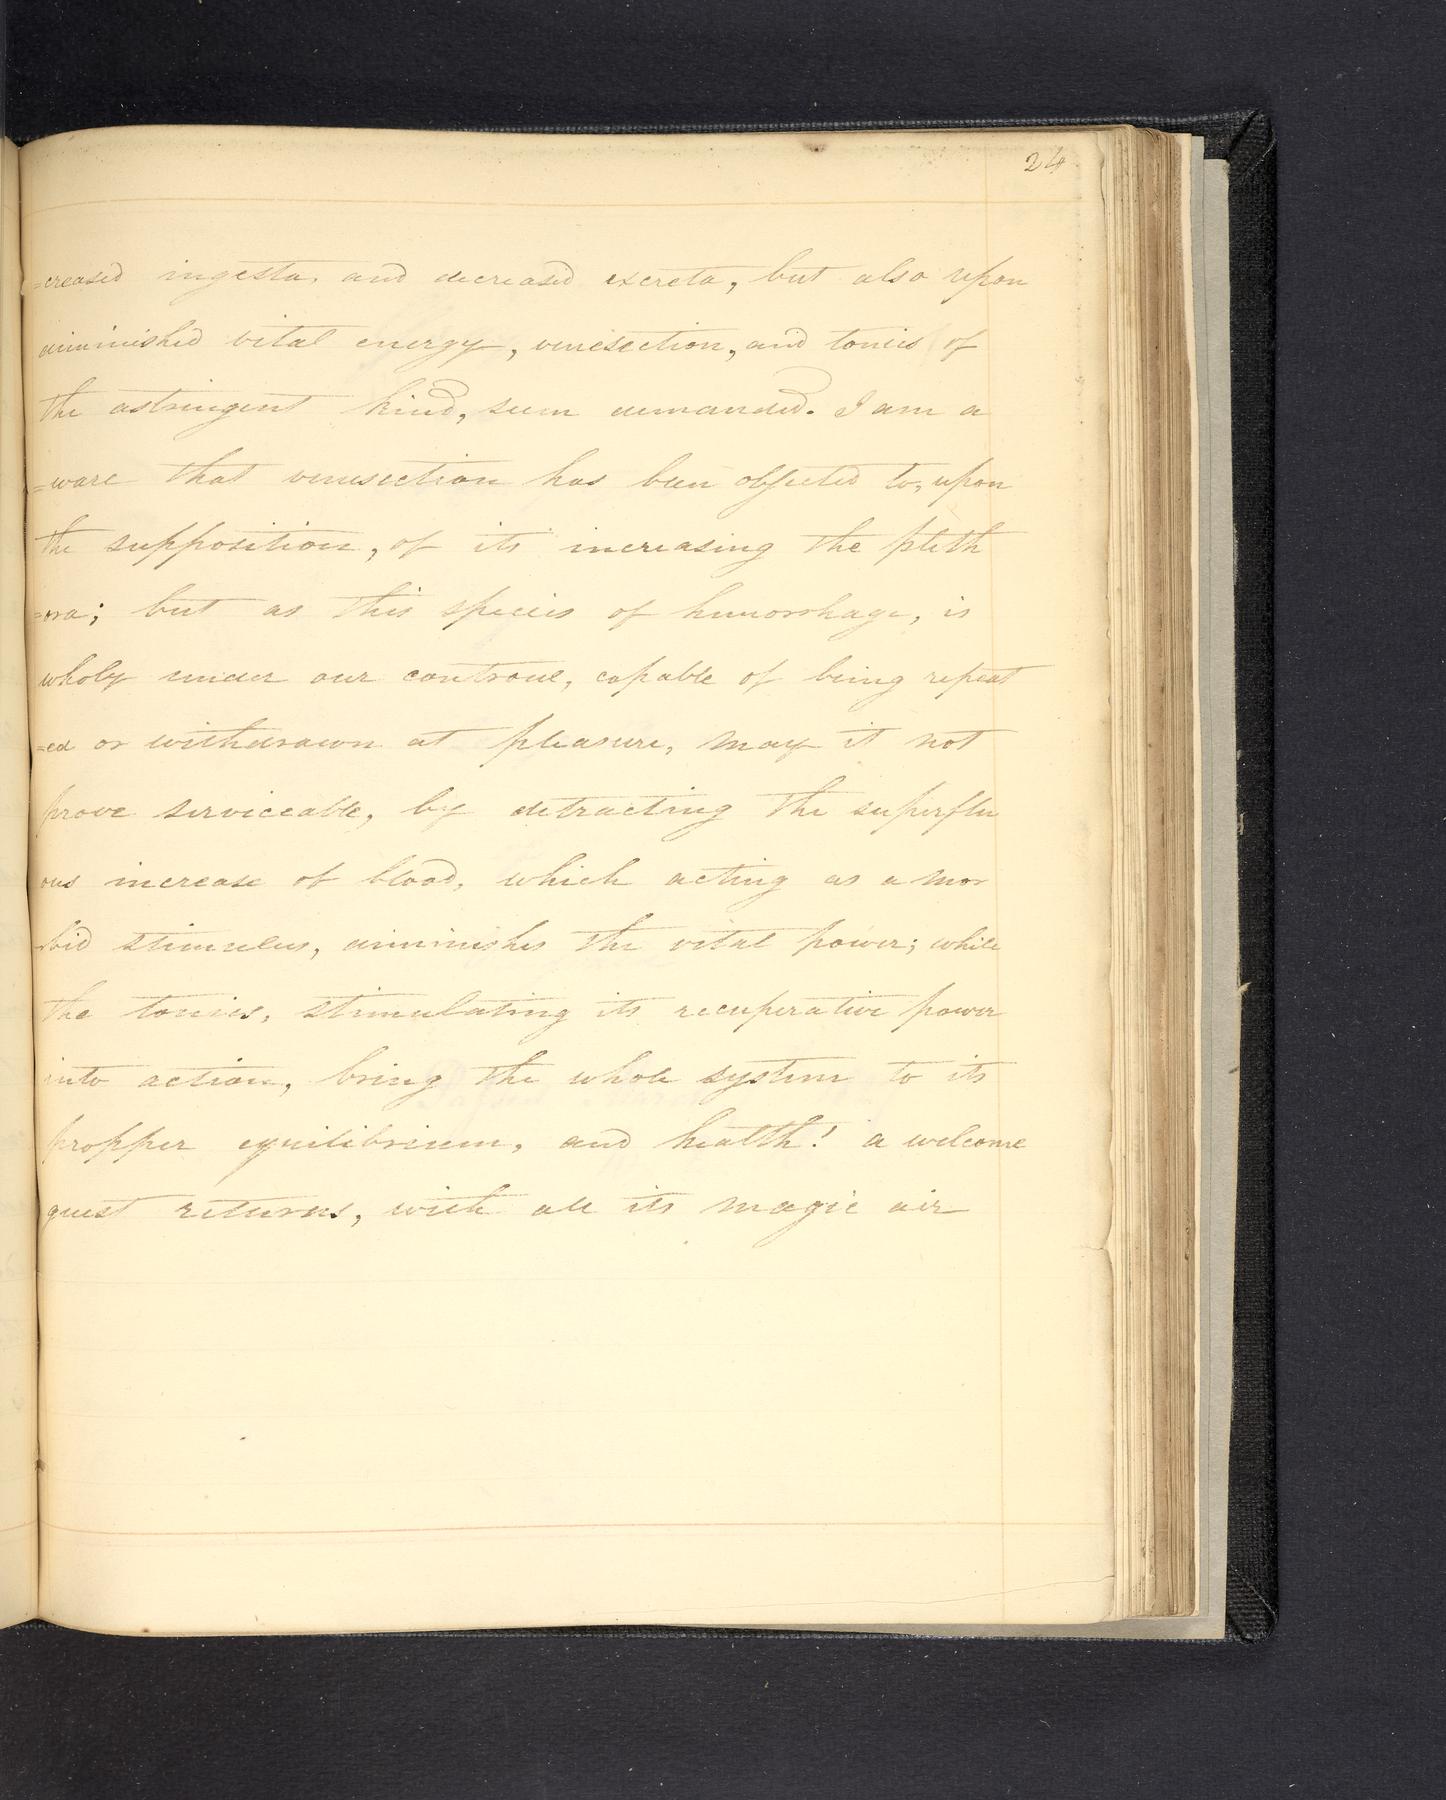 24
=creased ingesta, and decreased excreta, but also upon
diminished vital energy, venesection, and tonics of
the astringent kind, seem demanded. I am a
=ware that venesection has been objected to, upon
the supposition, of its increasing the pleth
=ora; but as this species of hemorrhage, is
wholy under our controul, capable of being repeat
=ed or withdrawn at pleasure, may it not
prove serviceable, by detracting the superflu
ous increase of blood, which acting as a mor
bid stimulus, diminishes the vital power; while
the tonics, stimulating its recuperative power
into action, bring the whole system to its
propper equilibrium, and health! a welcome
guest returns, with all its magic air